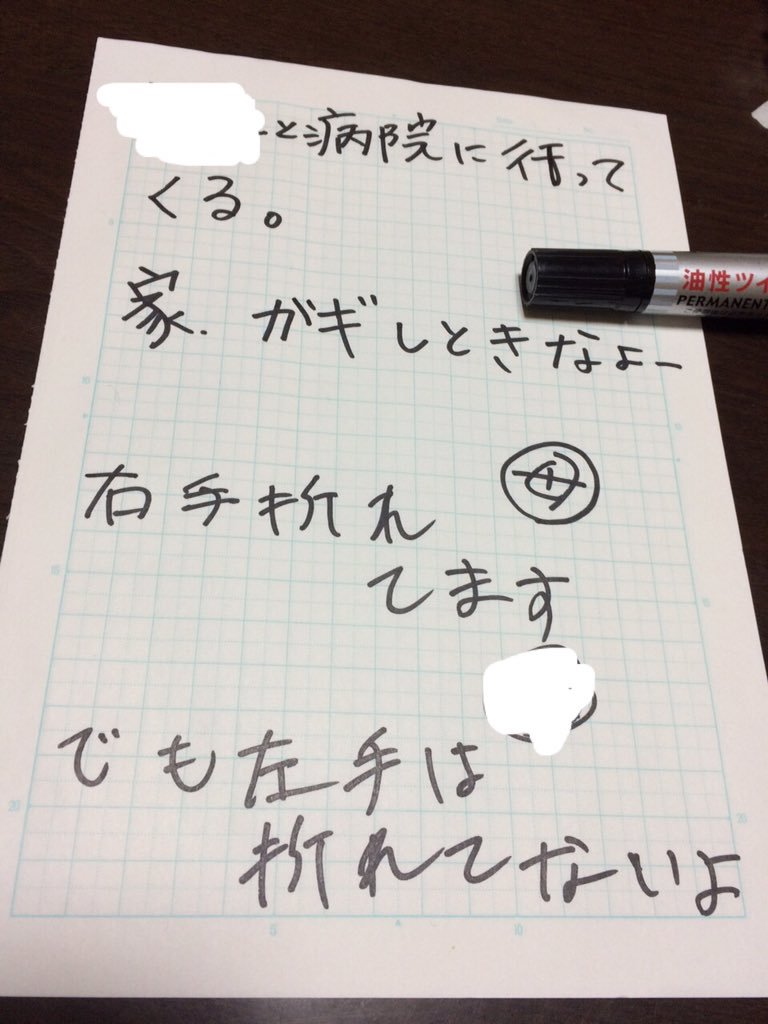 ーと病院に行って
くる。
家. ガギしときなよー
油性ツイ
PERMANENT
右手折れ 母
てます
でも左手は
折れてないよ